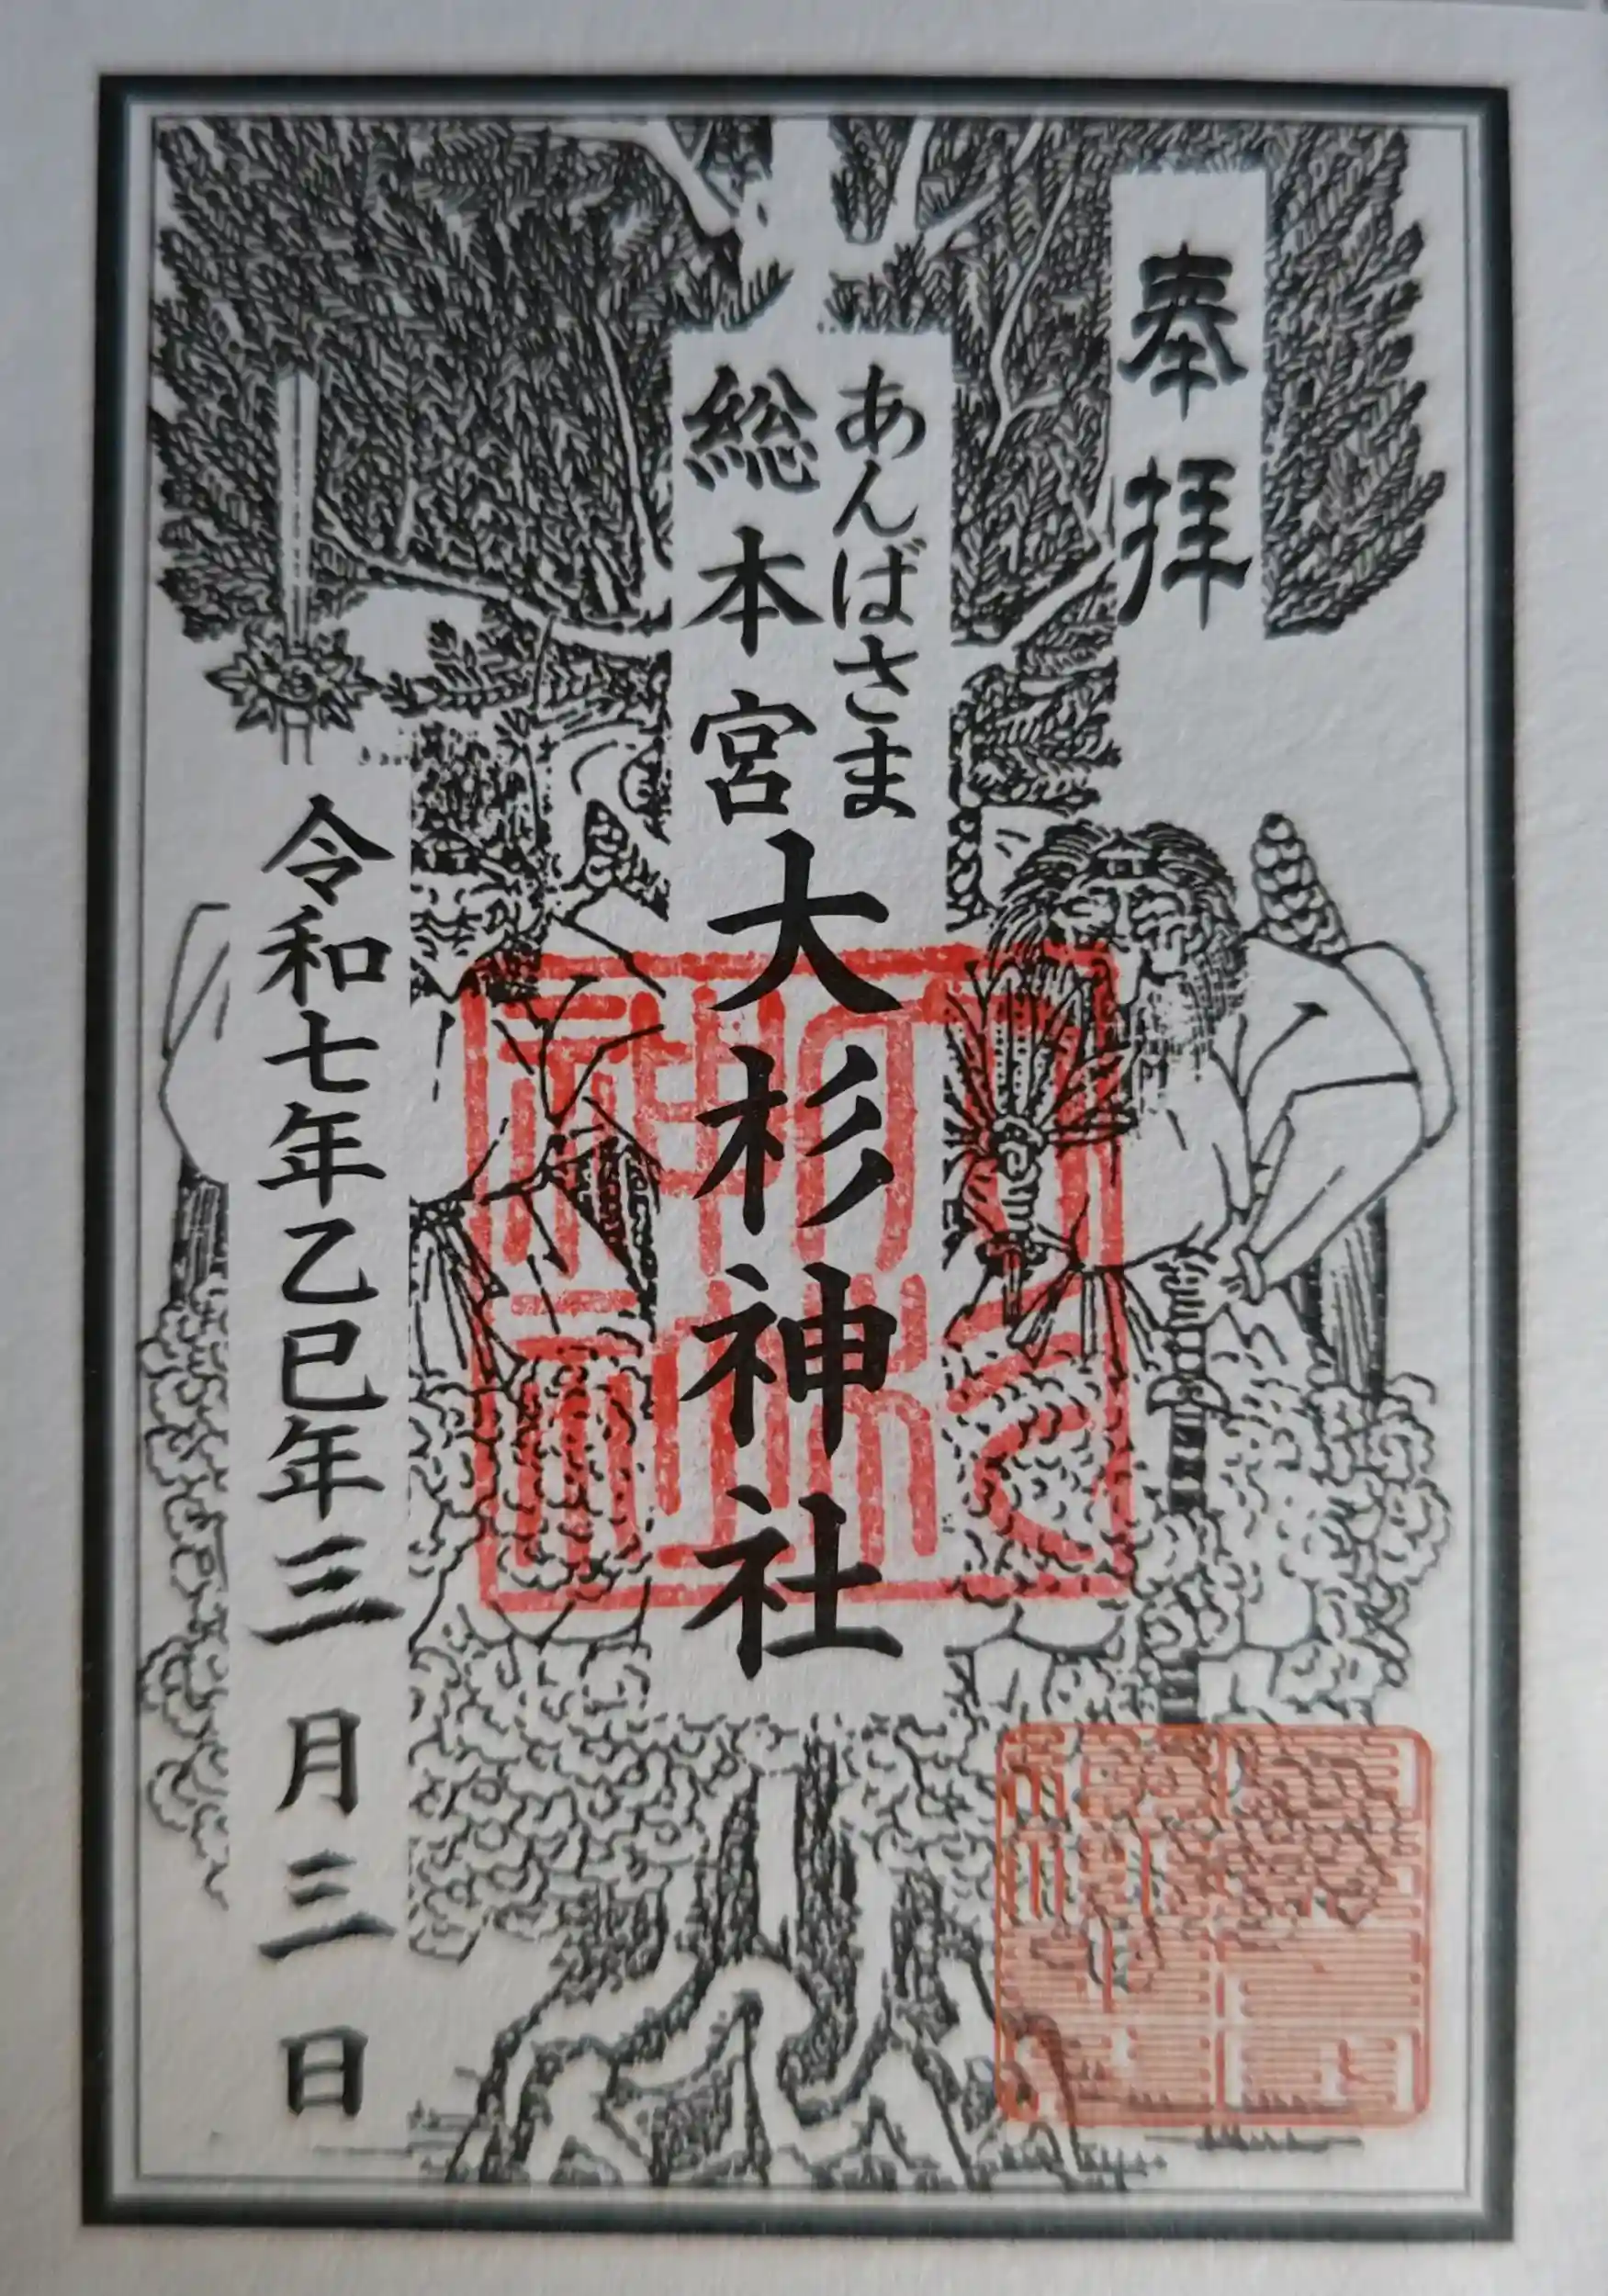 奉拝
あんばさま
総本宮大杉神社
令和七年乙巳年三月三日